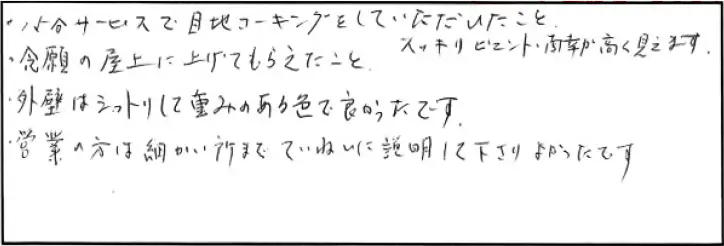 ・小谷サービスで目地コーキングをしていただいたこと。
スッキリピシッと・南幸が高く見えます。
・念願の屋上に上げてもらえたこと。
・外壁はシットリして重みのある色で良かったです。
・営業の方は細かい所までていねいに説明して下さりよかったです